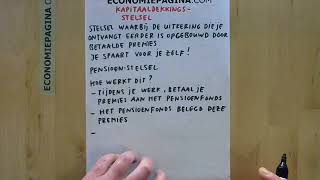 ECONOMIEPAGINA.COM
KAPITAALDEKKINGS-
STELSEL
STELSEL WAARBIJ DE UITKERING DIE JE
ONTVANGT EERDER IS OPGEBOUWD DOOR
BETAALDE PREMIES
JE SPAART VOOR JE ZELF!
PENSIOEN-STELSEL
HOE WERKT DIT?
- TIJDENS JE WERK, BETAAL JE
PREMIES AAN HET PENSIOENFONDS
- HET PENSIOENFONDS BELEGD DEZE
PREMIES
-
ECONOMIEPAGINA.COM